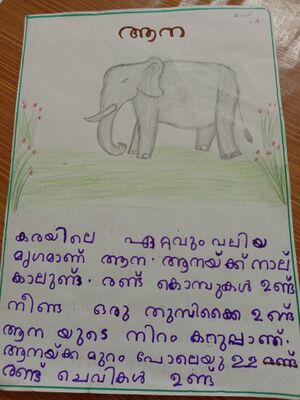 ആന
കരയിലെ ഏറ്റവും വലിയ
മൃഗമാണ് ആന. ആനയ്ക്ക് നാല്
കാലുണ്ട്. രണ്ട് കൊമ്പുകൾ ഉണ്ട്
നീണ്ട ഒരു തുമ്പിക്കൈ ഉണ്ട്
ആന യുടെ നിറം കറുപ്പാണ്.
ആനയ്ക്ക മുറം പോലെയു ഉള്ള
രണ്ട് ചെവികൾ ഉണ്ട്